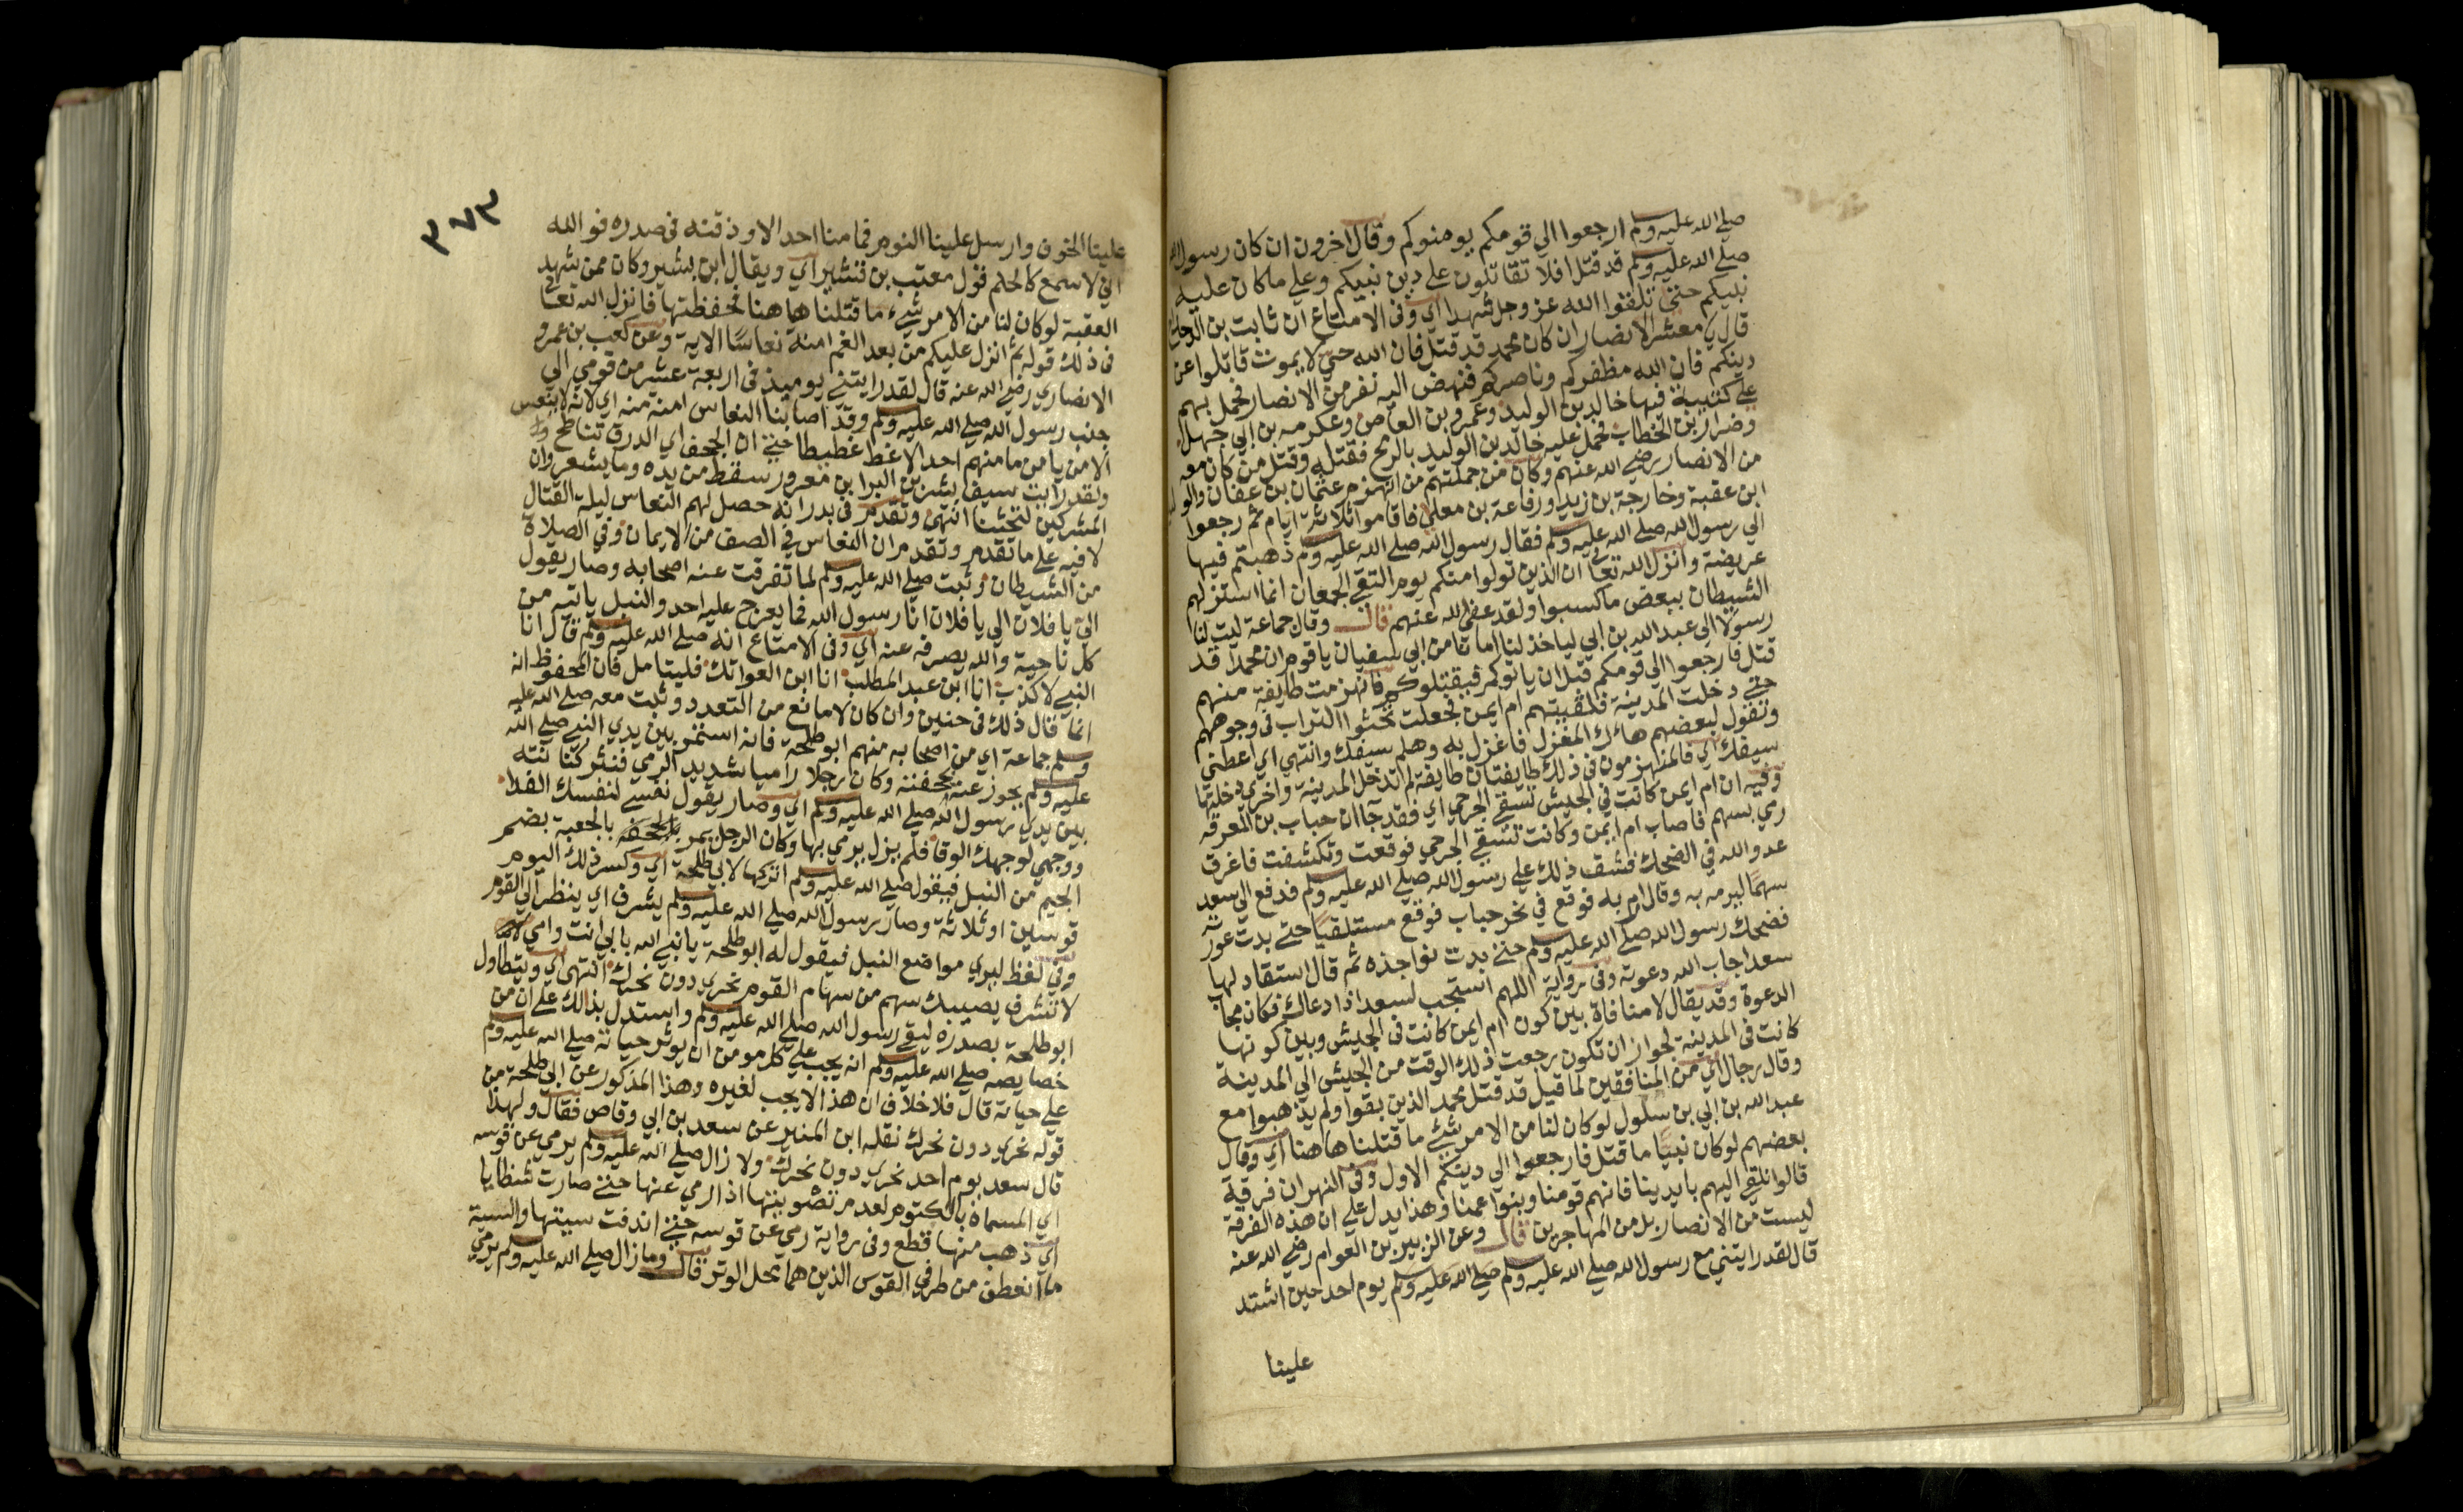 صلى الله عليه وسلم ارجعوا الى قومكم يومنوكم وقال اخرون ان كان رسول الله
صلى الله عليه وسلم قد قتل افلا تقاتلون على دين نبيكم وعلى ما كان عليه
نبيكم حتى تلقوا الله عز وجل شهدا اي وفى الامتاع ان ثابت بن الدحداح
قال يا معشر الانصار ان كان محمد قد قتل فان الله حي لا يموت قاتلوا عن
دينكم فان الله مظفركم وناصركم فنهض اليه نفر من الانصار فحمل بهم
على كتيبة فيها خالد بن الوليد وعمرو بن العاص وعكرمه بن ابي جهل
وضرار بن الخطاب فحمل عليه خالد بن الوليد بالرمح فقتله وقتل من كان معه
من الانصار رضي الله عنهم وكان من جملتهم من انهزم عثمان بن عفان والوليد
ابن عقبة وخارجة بن زيد ورفاعة بن معلى فاقاموا ثلاثة ايام ثم رجعوا
الى رسول الله صلى الله عليه وسلم فقال رسول الله صلى الله عليه وسلم ذهبتم فيها
عريضة وانزل الله تعالى ان الذين تولوا منكم يوم التقى الجمعان انما استزلهم
الشيطان ببعض ما كسبوا ولقد عفى الله عنهم قال وقال جماعة ليت لنا
رسولا الى عبد الله بن ابي لياخذ لنا امانا من ابي سفيان يا قوم ان محمدا قد
قتل فارجعوا الى قومكم قبل ان ياتوكم فيقتلوكم فانهزمت طايفة منهم
حتى دخلت المدينة فلقيتهم ام ايمن فجعلت تحثوا التراب فى وجوههم
وتقول لبعضهم هاك المغزل فاغزل به وهلم سيفك وانتهى اي اعطني
سيفك اي فالمنهزمون فى ذلك طايفتان طايفة لم تدخل المدينة واخرى دخلتها
وفيه ان ام ايمن كانت في الجيش تسقى الجرحى اي فقد جا ان حباب بن العرقة
رمى بسهم فاصاب ام ايمن وكانت تسقى الجرحى فوقعت وتكشفت فاغرق
عدو الله في الضحك فشق ذلك على رسول الله صلى الله عليه وسلم فدفع الى سعد
سهما ليرمه به وقال ارم به فوقع في نحر حباب فوقع مستلقيا حتى بدت عورته
فضحك رسول الله صلى الله عليه وسلم حتى بدت نواجذه ثم قال استقاد لها
سعد اجاب الله دعوته وفى رواية اللهم استجب لسعد اذا دعاك فكان مجاب
الدعوة وقد يقال لا منافاة بين كون ام ايمن كانت فى الجيش وبين كونها
كانت فى المدينة لجواز ان تكون رجعت ذلك الوقت من الجيش الى المدينة
وقال رجال اي من المنافقين لما قيل قد قتل محمد الذين بقوا ولم يذهبوا مع
عبد الله بن ابي بن سلول لو كان لنا من الامر شئ ما قتلنا هاهنا اي وقال
بعضهم لو كان نبيا ما قتل فارجعوا الى دينكم الاول وفى النهر ان فرقة
قالوا نلقى اليهم بايدينا فانهم قومنا وبنوا عمنا وهذا يدل على ان هذه الفرقة
ليست من الانصار بل من المهاجرين قال وعن الزبير بن العوام رضي الله عنه
قال لقد رايتني مع رسول الله صلى الله عليه وسلم صلى الله عليه وسلم يوم احد حين اشتد
علينا
٣٧٣
علينا الخوف وارسل علينا النوم فما منا احد الا وذقنه فى صدره فوالله
اني لاسمع كالحلم قول معتب بن قشير اي ويقال ابن بشير وكان ممن شهد
العقبة لو كان لنا من الامر شيء ما قتلنا هاهنا فحفظتها فانزل الله تعالى
فى ذلك قوله ثم انزل عليكم من بعد الغم امنة نعاسا الاية وعن كعب بن عمرو
الانصاري رضي الله عنه قال لقد رايتني يوميذ فى اربعة عشر من قومي الى
جنب رسول الله صلى الله عليه وسلم وقد اصابنا النعاس امنة منه اي لانه لا ينعس
الا من يامن ما منهم احد الا غط غطيطا حتى ان الجحف اي الدرق تناطح
ولقد رايت سيف بشر بن البرا بن معرور سقط من يده وما يشعر وان
المشركين لتحثنا انتهى وتقدم فى بدر انه حصل لهم النعاس ليلة القتال
لا فيه على ما تقدم وتقدم ان النعاس في الصف من الايمان وفي الصلاة
من الشيطان وثبت صلى الله عليه وسلم لما تفرقت عنه اصحابه وصار يقول
الي يا فلان الي يا فلان انا رسول الله فما يعرج عليه احد والنبل ياتيه من
كل ناحية والله يصرفه عنه اي وفى الامتاع انه صلى الله عليه وسلم قال انا
النبي لا كذب انا ابن عبد المطلب انا ابن العواتك فليتامل فان المحفوظ انه
انما قال ذلك فى حنين وان كان لا مانع من التعدد وثبت معه صلى الله عليه
وسلم جماعة اي من اصحابه منهم ابو طلحة فانه استمر بين يدي النبي صلى الله
عليه وسلم يجوز عنه بحجفته وكان رجلا راميا شديد الرمي فنثر كنانته
بين يدي رسول الله صلى الله عليه وسلم اي وصار يقول نفسي لنفسك الفدا
ووجهي لوجهك الوقا فلم يزل يرمي بها وكان الرجل يمر بالجعبة بضم
الجيم من النبل فيقول صلى الله عليه وسلم انزكها لابي طلحة اي وكسر ذلك اليوم
قوسين او ثلاثة وصار رسول الله صلى الله عليه وسلم يشرف اي ينظر الى القوم
وفى لفظ ليري مواضع النبل فيقول له ابو طلحة يا نبي الله بابي انت وامي
لا تشرف يصيبك سهم من سهام القوم نحري دون نحرك انتهى اي ويتطاول
ابو طلحة بصدره ليقى رسول الله صلى الله عليه وسلم واستدل بذالك على ان من
خصايصه صلى الله عليه وسلم انه يجب على كل مومن ان يوثر حياته صلى الله عليه وسلم
على حياته قال فلا خلاف ان هذا لا يجب لغيره وهذا المذكور عن ابى طلحة من
قوله نحري دون نحرك نقله ابن المنير عن سعد بن ابي وقاص فقال ولهذا
قال سعد يوم احد نحري دون نحرك ولا زال صلى الله عليه وسلم يرمي عن قوسه
اي المسماة بالكتوم لعدم تصويتها اذا رمي عنها حتى صارت شظايا
اي ذهب منها قطع وفى رواية رمى عن قوسه حتى اندقت سيتها والسية
ما انعطف من طرفي القوس الذين هما محل الوتر قال وما زال صلى الله عليه وسلم يرمي